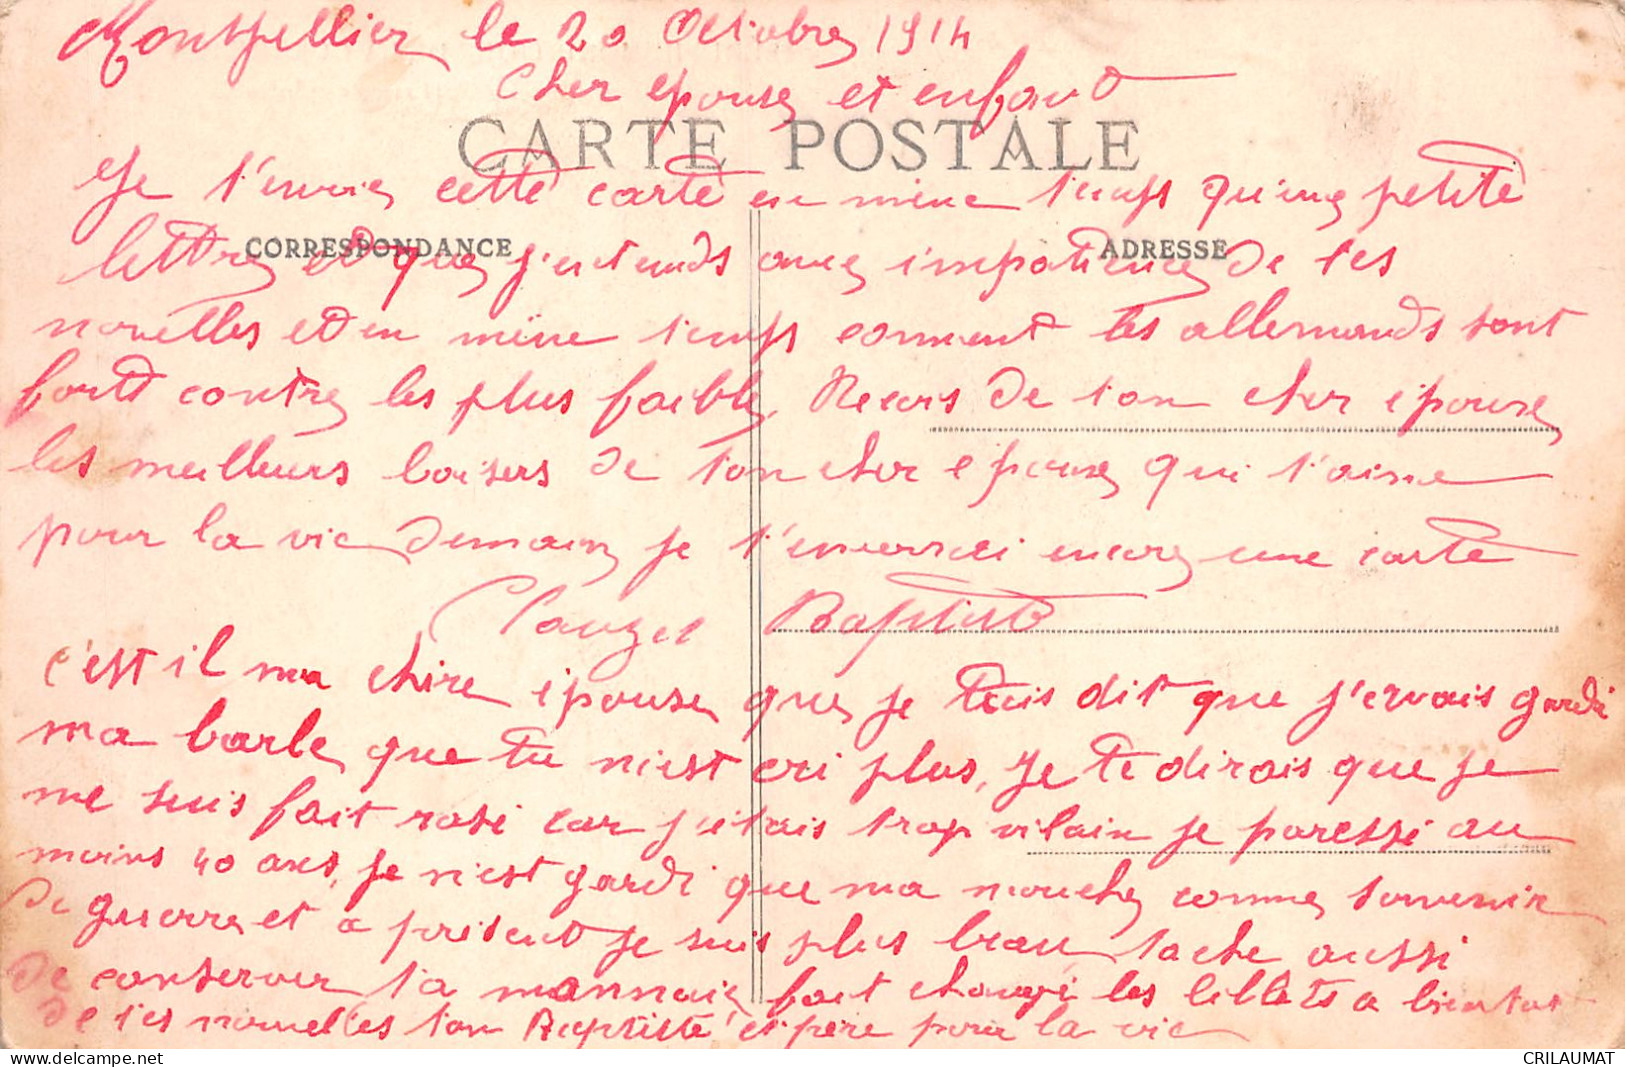 Montpellier le 20 Octobre 1914
Cher epouse et enfant
CARTE POSTALE
Je t'envoie cette carte en mème temps qu'une petite
CORRESPONDANCE
ADRESSE
lettre et que j'entends avec impatience de tes
nouvelles et en mème temps comment les allemands sont
fort contre les plus faible, Recois de ton cher épouse
les meilleurs baisers de ton cher epouse qui t'aime
pour la vie demain je t'enverrai encore une carte
Clauzel Baptiste
c'est il ma chère épouse que je tais dit que j'ervais gardé
ma barbe que tu n'est eri plus, Je te dirais que je
me suis fait rasé car j'étais trop vilain je paressé au
moins 40 ans, je n'est gardé que ma mouche comme souvenir
de guerre et a présent je suis plus beau, tache aussi
de conserver ta monnaie fait changé les billets a bientot
de tes nouvelles ton Baptiste et père pour la vie
CRILAUMAT